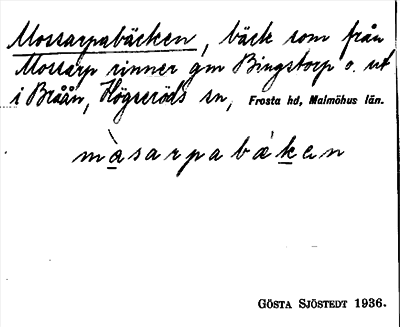 Mossarpabäcken, bäck som från
Mossarp rinner gm Bingstorp o. ut
i Bråån, Högseröds sn, Frosta hd, Malmöhus län.
màsarpabäken
GÖSTA SJÖSTEDT 1936.